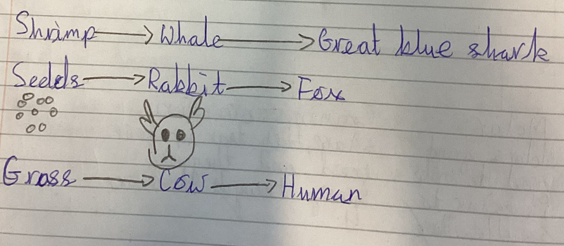 Shrimp → Whale → Great blue shark
Seeds → Rabbit → Fox
Grass → Cow → Human